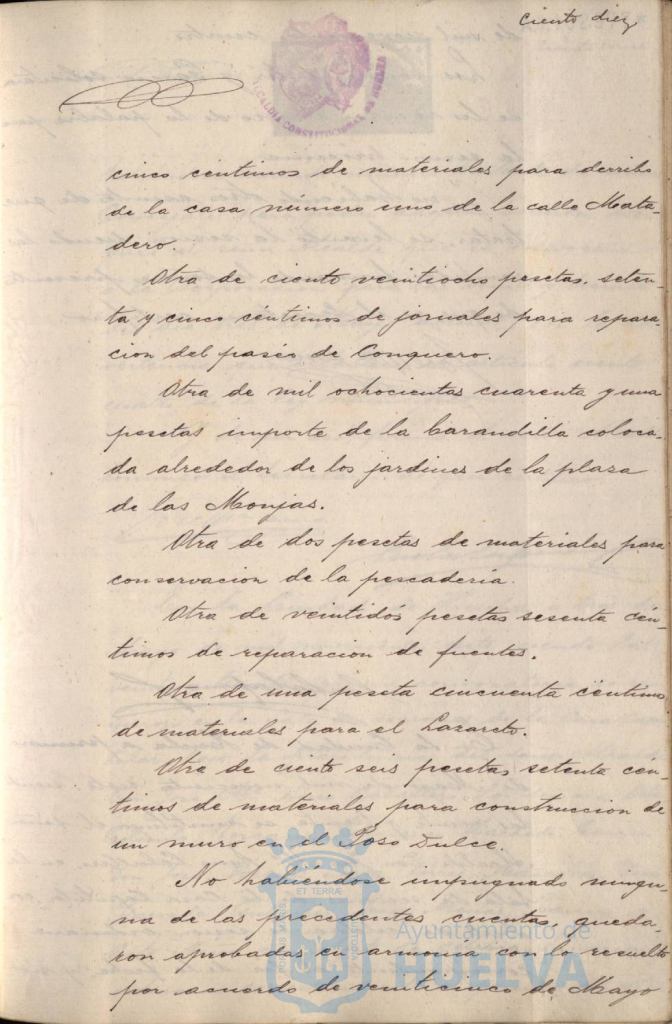 Ciento diez
ALCALDIA CONSTITUCIONAL DE HUELVA
cinco céntimos de materiales para derribo
de la casa número uno de la calle Mata-
dero.
Otra de ciento veintiocho pesetas, seten-
ta y cinco céntimos de jornales para repara-
cion del paséo de Conquero.
Otra de mil ochocientas cuarenta y una
pesetas importe de la barandilla coloca-
da alrededor de los jardines de la plaza
de las Monjas.
Otra de dos pesetas de materiales para
conservacion de la pescadería.
Otra de veintidós pesetas sesenta cén-
timos de reparacion de fuentes.
Otra de una peseta cincuenta céntimos
de materiales para el Lazareto.
Otra de ciento seis pesetas, setenta cén-
timos de materiales para construccion de
un muro en el Poso Dulce.
No habiéndose impugnado ningu-
na de las precedentes cuentas, queda-
ron aprobadas en armonía con lo resuelto
por acuerdo de veinticinco de Mayo
ET TERRÆ
Ayuntamiento de
HUELVA